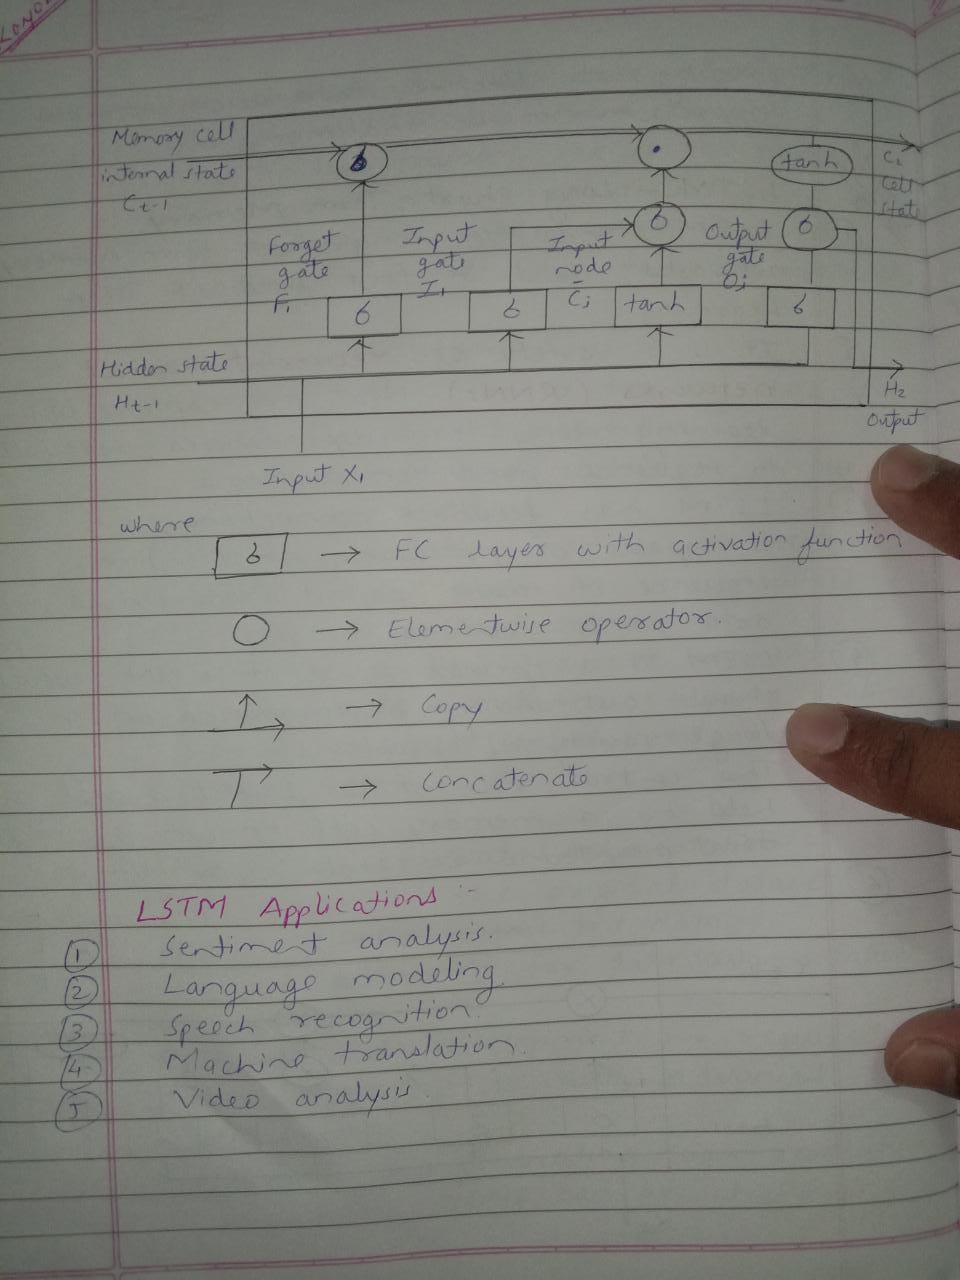 Memory cell
internal state
Ct-1
tanh
C2
Cell
state
Forget
gate
F1
Input
gate
I1
Input
node
C̄j
Output
gate
Oj
6
6
6
6
tanh
6
Hidden state
Ht-1
H2
Output
Input X1
where
6 → FC layer with activation function
○ → Elementwise operator.
→ Copy
→ Concatenate
LSTM Applications :-
① Sentiment analysis.
② Language modeling.
③ Speech recognition.
④ Machine translation.
⑤ Video analysis.